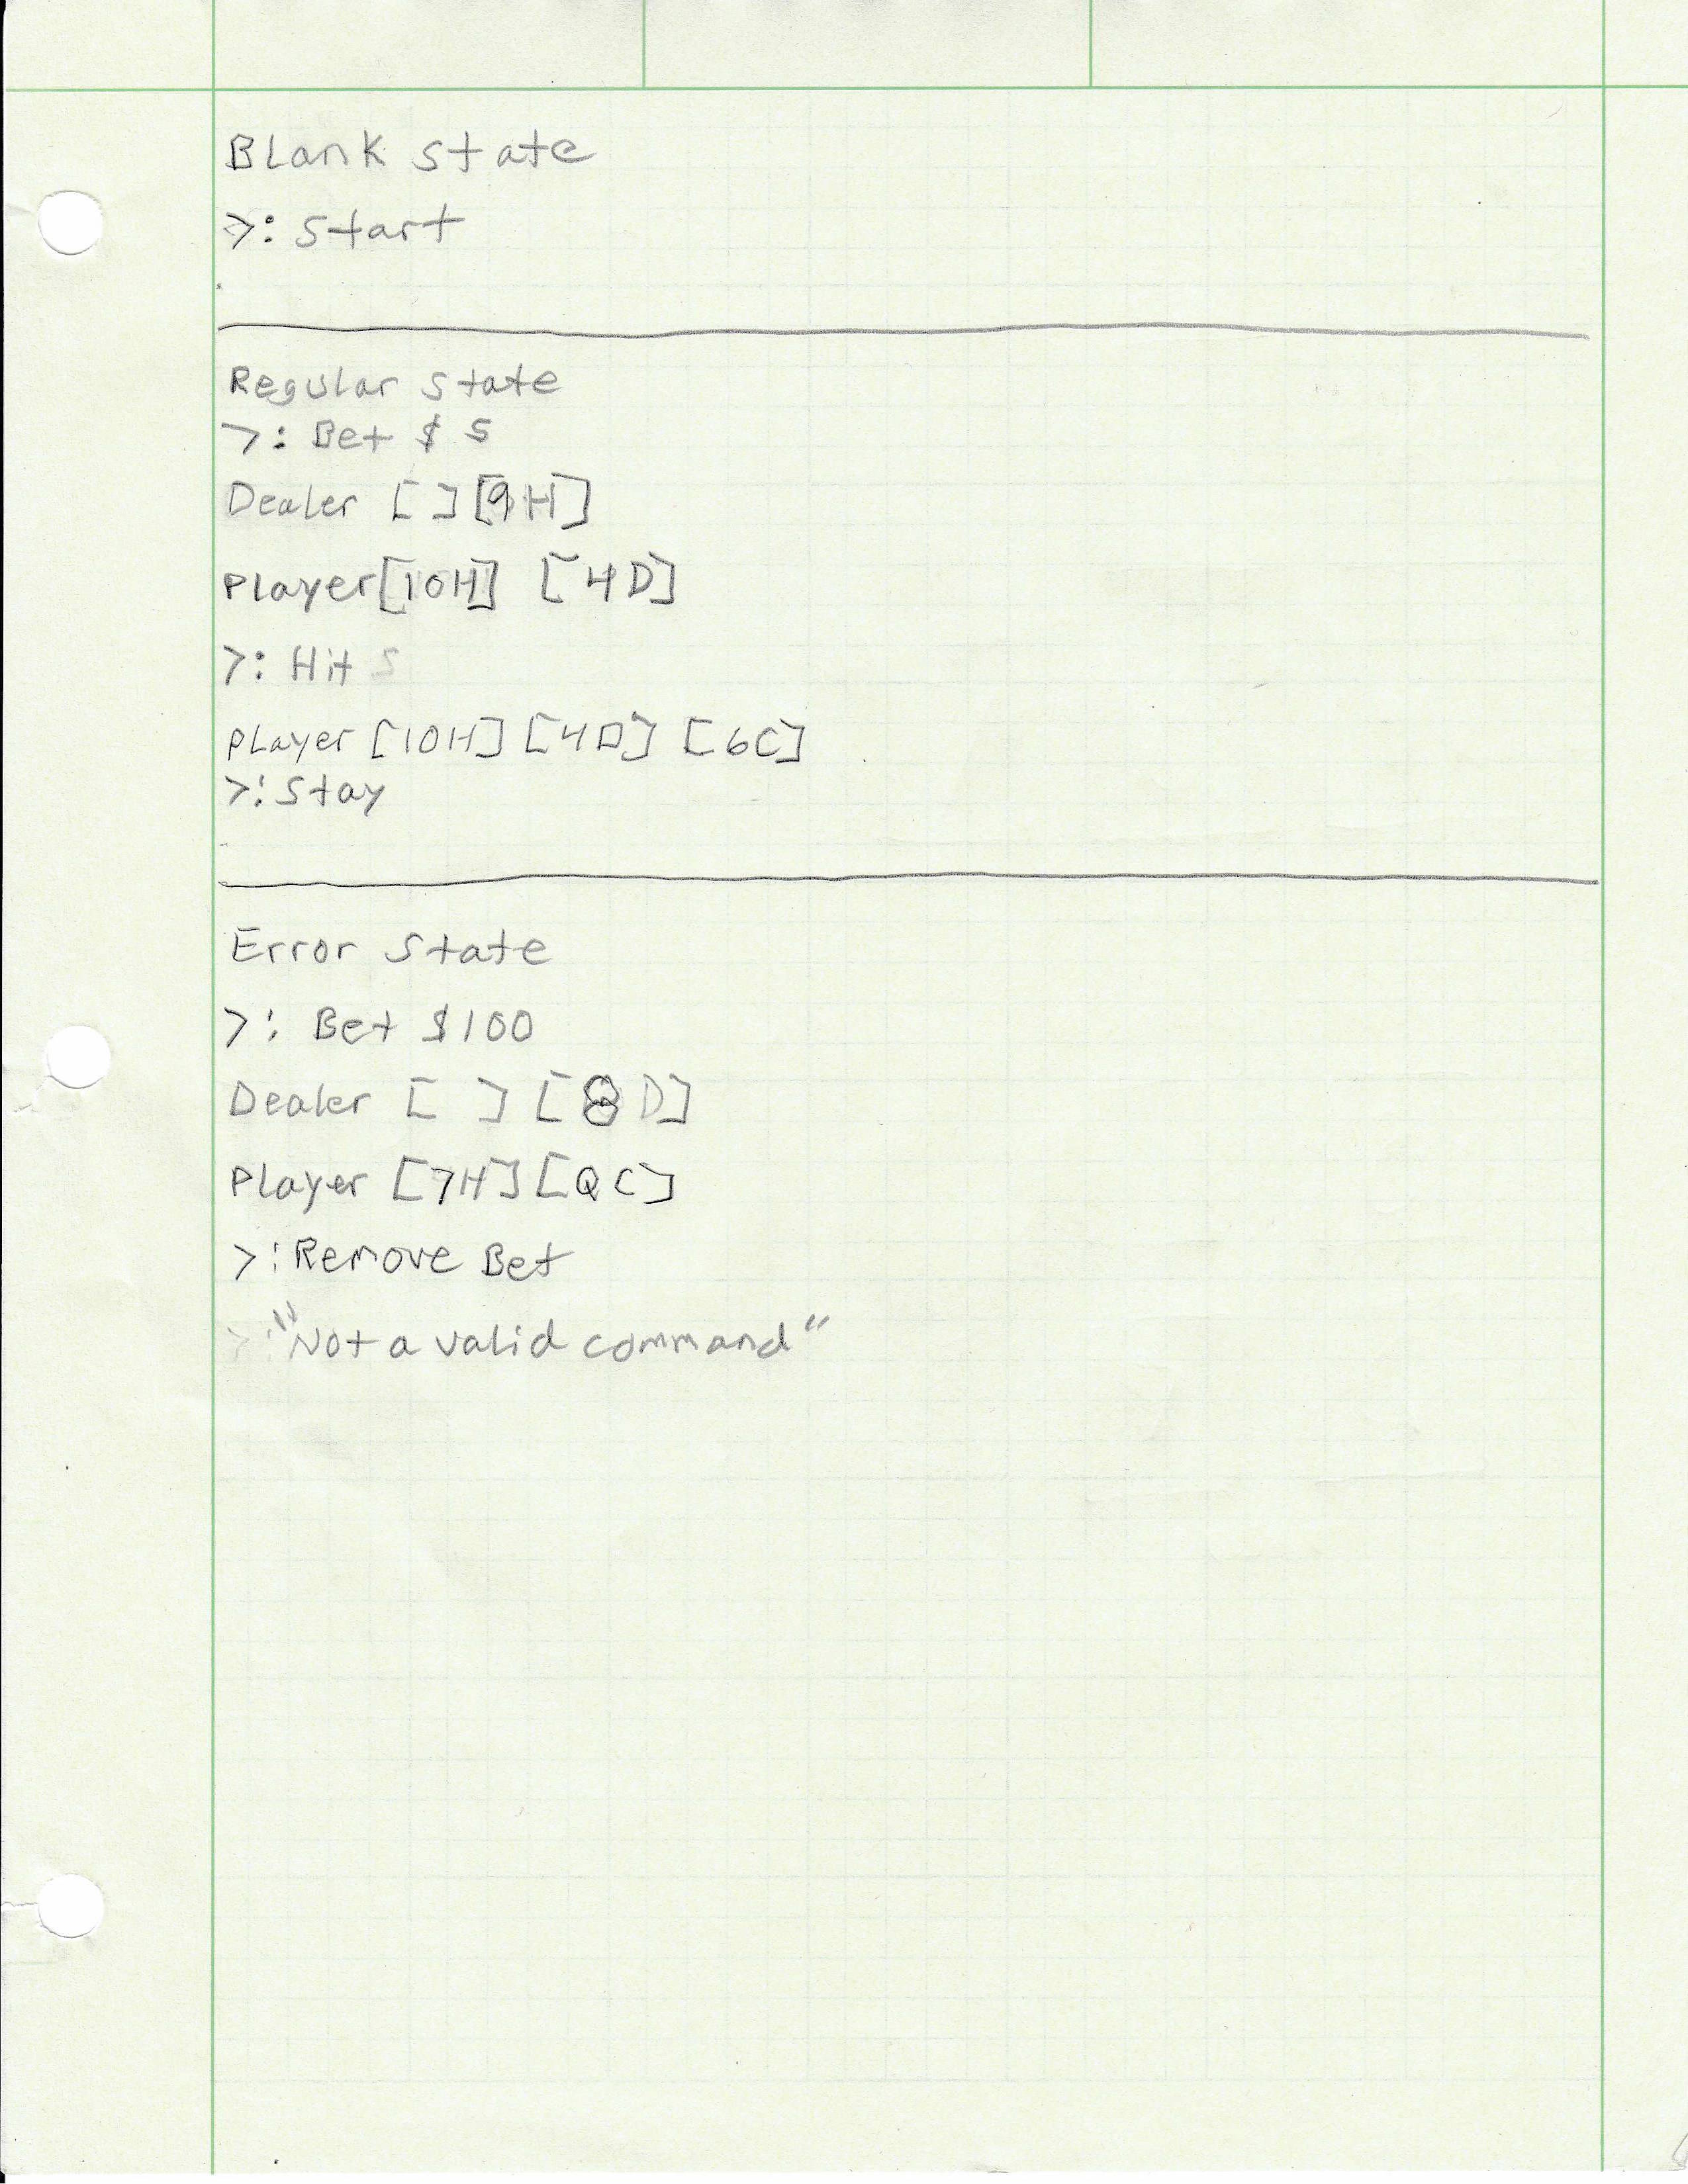 Blank state
>: Start
Regular state
>: Bet $ 5
Dealer [ ] [9H]
Player [10H] [4D]
>: Hit
Player [10H] [4D] [6C]
>: Stay
Error state
>: Bet $100
Dealer [ ] [8D]
Player [7H] [QC]
>: Remove Bet
"Not a valid command"